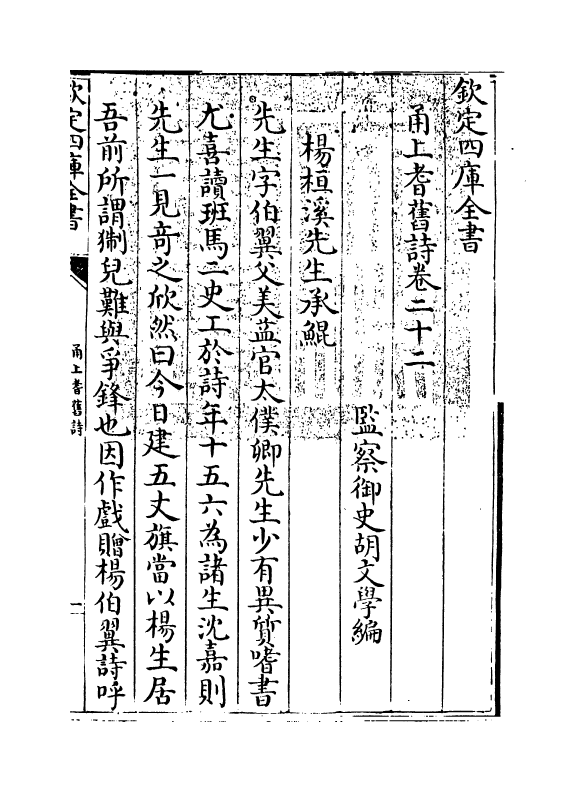 欽定四庫全書
甬上耆舊詩卷二十二
監察御史胡文學編
楊桓溪先生承鯤
先生字伯翼父美益官太僕卿先生少有異質嗜書
尤喜讀班馬二史工於詩年十五六為諸生沈嘉則
先生一見竒之欣然曰今日建五丈旗當以楊生居
吾前所謂猘兒難與爭鋒也因作戲贈楊伯翼詩呼
欽定四庫全書
甬上耆舊詩
一